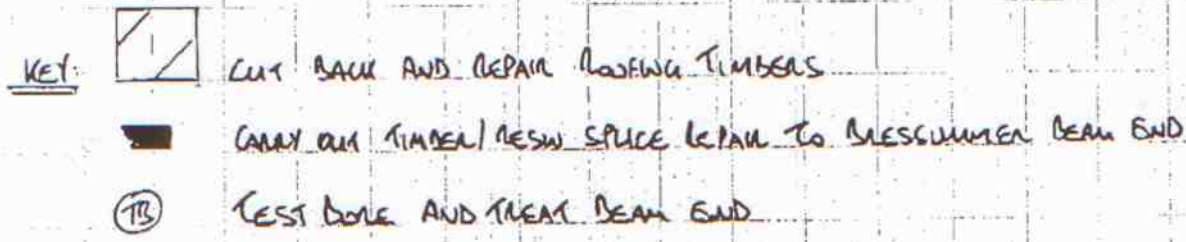 KEY: CUT BACK AND REPAIR ROOFING TIMBERS
CARRY OUT TIMBER/RESIN SPLICE REPAIR TO BRESSUMMER BEAM END
TB TEST BORE AND TREAT BEAM END